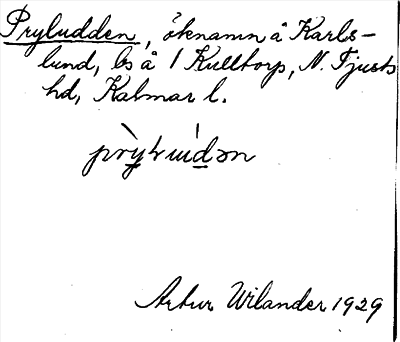 Pryludden, öknamn å Karls-
lund, ls å 1 Kulltorp, N. Tjusts
hd, Kalmar l.
Arthur Wilander 1929